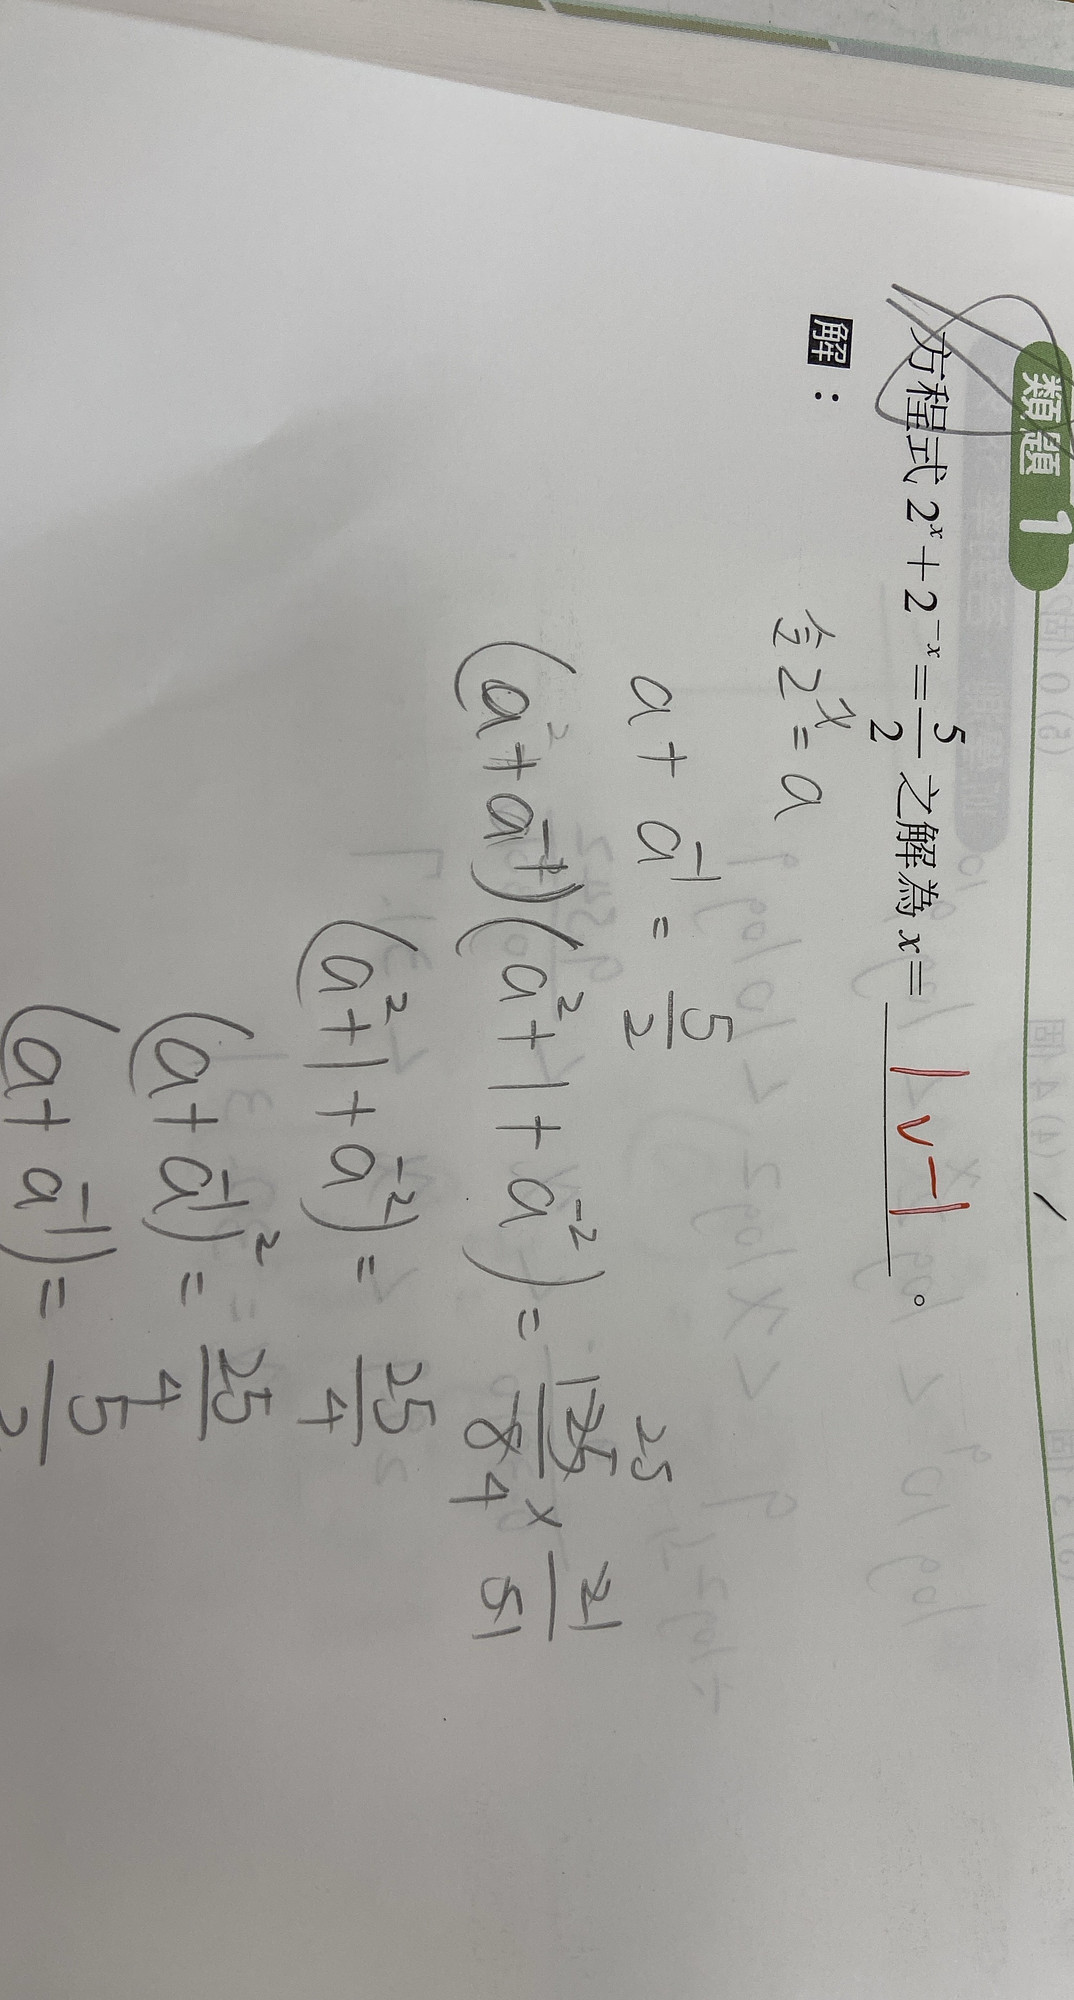 類題 1
方程式 2^x + 2^{-x} = 5/2 之解為 x = 1 v -1 。
解：
令 2^x = a
a + a^{-1} = 5/2
(a + a^{-1})(a^2 + 1 + a^{-2}) = 125/8 25/4 × 2/5
(a^2 + 1 + a^{-2}) = 25/4
(a + a^{-1})^2 = 25/4
(a + a^{-1}) = 5/2